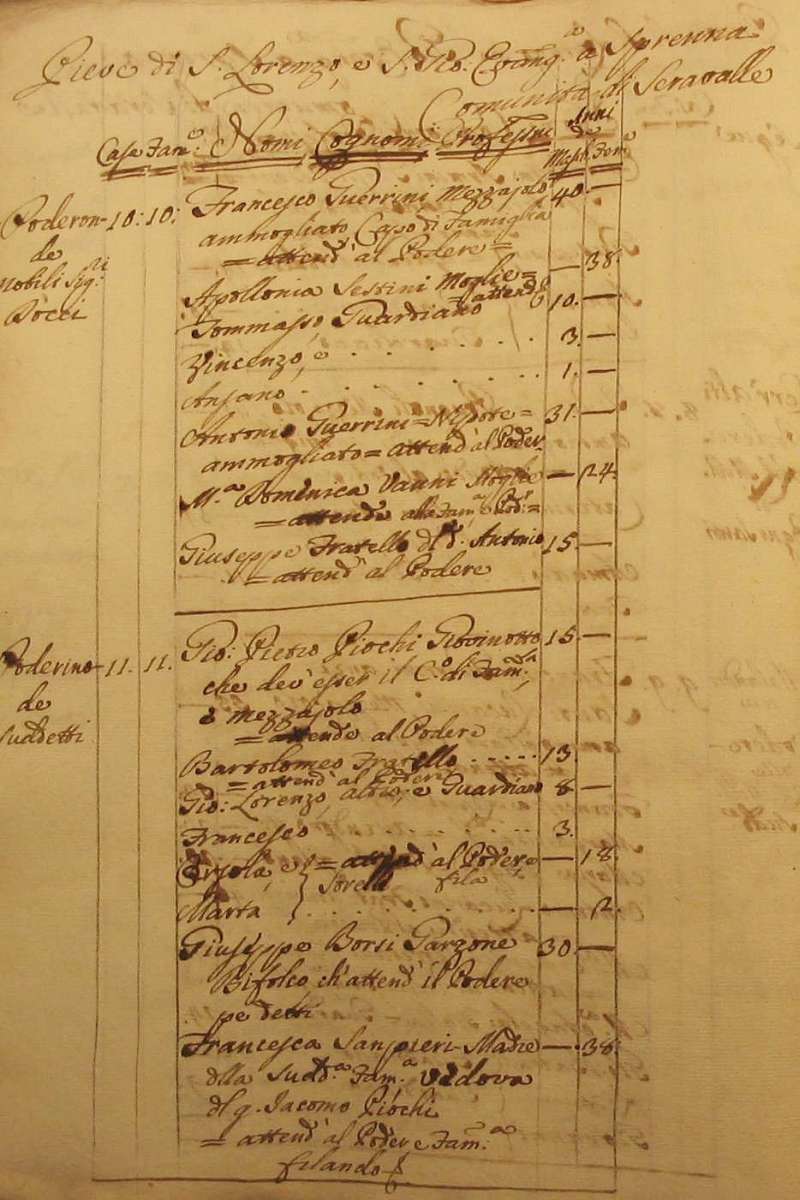 Pieve di S. Lorenzo, e S. Gio. Evang.a a Sprenna
Comunità di Seravalle
Case Fam.e Nomi Cognomi Professini Anni
de
Mas. Fem.e
Poderon- 10: 10: Francesco Guerrini Mezzajolo 40 —
de ammogliato, Capo di Famiglia
Nobili Sigri = attend' al Podere =
Bocci Apollonia Sestini Moglie = — 38.
= attende
Tommaso, Guardiano 10. —
Vincenzo, e . . . . . . 3. —
Ansano . . . . . . . 1. —
Antonio Guerrini = Nipote = 31. —
ammogliato = attend' al Poder.
M.a Domenica Vanni Moglie — 24.
= attende alla Fam.a e Pod.e =
Giuseppe Fratello dl d. Antonio 15. —
= attend' al Podere
Poderino- 11. 11. Gio: Pietro Piochi Giovinotto 15 —
de che dev' esser il C.o di Fam.a,
Suddetti e mezzajolo
= attende al Podere
Bartolomeo Fratello . . . . . 13.
= attend' al Podere
Gio: Lorenzo, altro, e Guardiano 8 —
Francesco . . . . . . . 3.
Orsola, e = attend' al Podere, e — 18.
Sorelle fila
Marta . . . . . . . — 2.
Giuseppe Borsi Garzone 30. —
Bifolco, ch' attend' il Podere
pe detti
Francesca Sanpieri Madre — 38.
dlla Sudd.a Fam.a Vedova
dl q. Jacomo Piochi
= attend' al Poder e Fam.a
filando